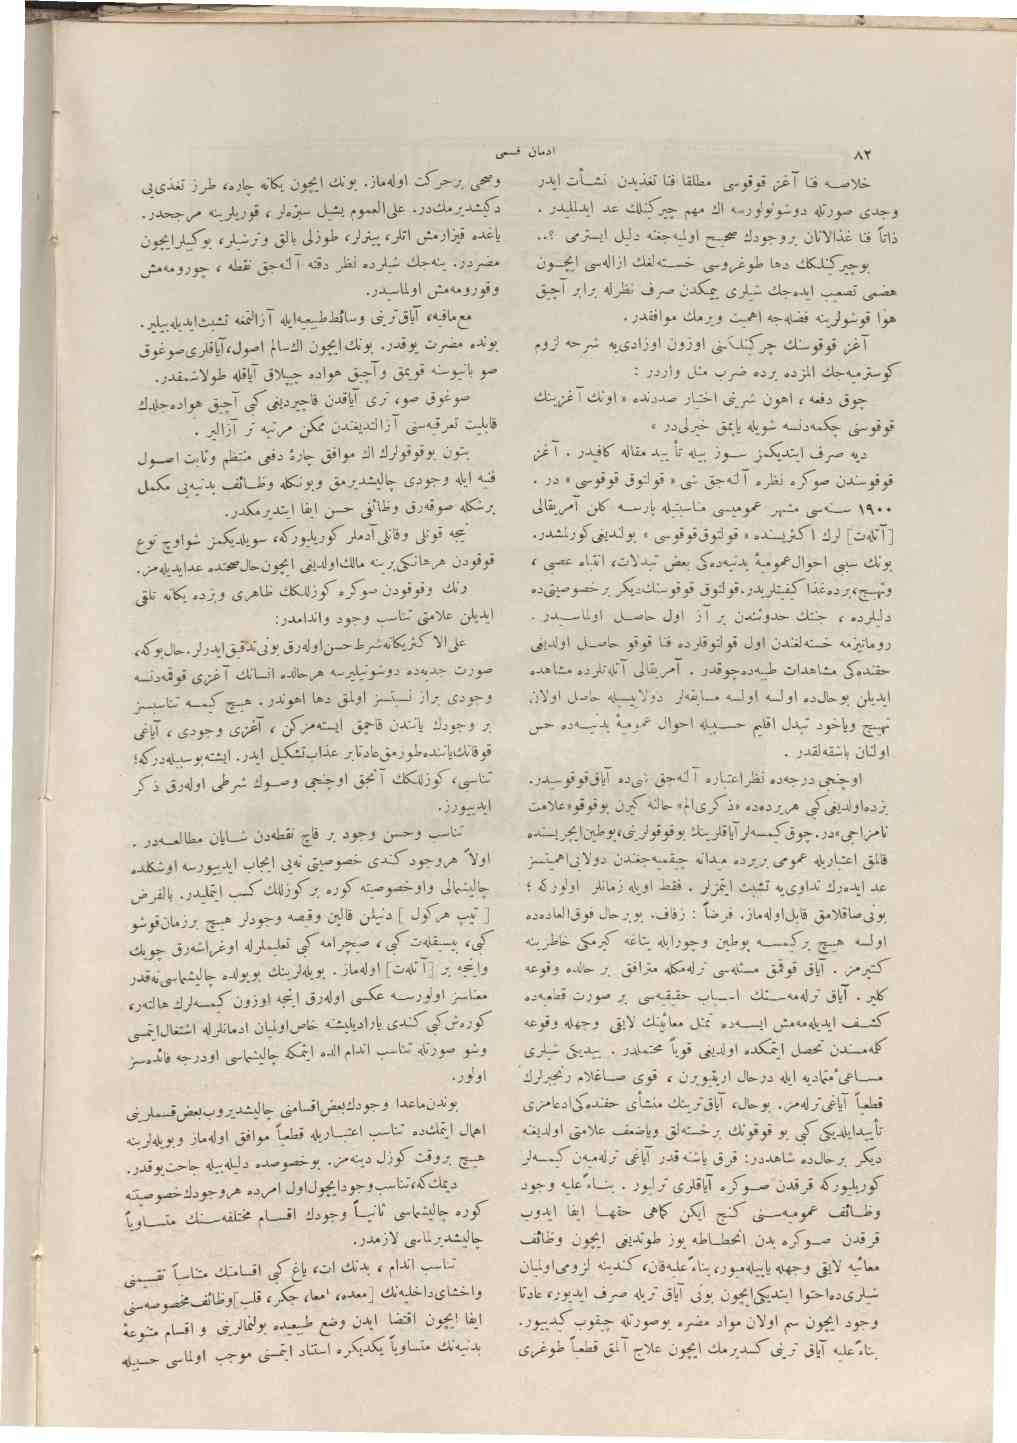 ٨٢
ادمان قسمی
خلاصه فنا آغز قوقوسی مطلقا فنا تغذیدن نشأت ایدر
وجدی صورتله دوشونولورسه اك مهم چیركینلك عد ایدلملیدر .
ذاتاً فنا غذالانان بر وجودك صحیح اولمیه‌جغنه دلیل ایسترمی ؟..
بوچیركینلكك دها طوغروسی خسته‌لغك ازاله‌سی ایچون
هضمی تصعیب ایده‌جك شیلری ییمكدن صرف نظرله برابر آچیق
هوا قوشولرینه فضله‌جه اهمیت ویرمك موافقدر .
آغز قوقوسنك چركینلكنی اوزون اوزادی‌یه شرحه لزوم
كوسترمیه‌جك المزده برده ضرب مثل واردر :
چوق دفعه ، اهون شرینی اختیار صددنده « اونك آغزینك
قوقوسنی چكمه‌دنسه شویله یاپمق خیرلی‌در »
دیه صرف ایتدیكمز سوز بیله تأیید مقاله كافیدر . آغز
قوقوسندن صوكره نظره آلنه‌جق شی « قولتوق قوقوسی » در .
١٩٠٠ سنه‌سی مشهر عمومیسی مناسبتیله پارسه كلن آمریقالی
[آتله‌ت] لرك اكثریسنده « قولتوق قوقوسی » بولندیغی كورلمشدر.
بونك سببی احوال عمومیهٔ بدنیه‌ده‌كی بعض تبدلات، انتباه عصبی ،
وتهیج، برده غذا كیفیتلریدر. قولتوق قوقوسنك دیكر بر خصوصیتی ده
دلیلرده ، جنتك حدوثندن بر آز اول حاصل اولماسیدر .
روماتیزمه خسته‌لغندن اول قولتوقلرده فنا قوقو حاصل اولدیغی
حقنده‌كی مشاهدات طبیه‌ده چوقدر . آمریقالی آتله‌تلرده مشاهده
ایدیلن بوحال‌ده اولسه اولسه مسابقه‌لر دولاییسیله حاصل اولان
تهییج ویاخود تبدل اقلیم حسبیله احوال عمومیهٔ بدنیه‌ده حس
اولنان باشقه‌لقدر .
اوچنجی درجه‌ده نظر اعتباره آلنه‌جق شی‌ده آیاق قوقوسیدر.
بزده اولدیغی كبی هریرده‌ده «ذكری الم» حالنه كیرن بوقوقو «علامت
نامزاجی» در. چوق كیمسه‌لر آیاقلرینك بوقوقولرینی، بوطین ایچریسنده
قالمق اعتباریله عمومی بریرده میدانه چیقمیه‌جغندن دولایی اهمیتسز
عد ایده‌رك تداوی‌یه تشبث ایتمزلر . فقط اویله زمانلر اولوركه ؛
بونی صاقلامق قابل اوله‌ماز. فرضاً : زفاف. بوبر حال فوق‌العاده‌ده
اولسه هیچ بركیمسه بوطین وچورابله یتاغه كیرمكی خاطرینه
كتیرمز . آیاق قوقمق مسئله‌سی ترله‌مكله مترافق بر حالده وقوعه
كلیر . آیاق ترله‌مه‌سنك اسباب حقیقیه‌سی بر صورت قطعیه‌ده
كشف ایدیله‌مه‌مش ایسه‌ده تمثل معائینك لایقی وجهله وقوعه
كلمه‌مسندن تحصل ایتمكده اولدیغی قویاً محتملدر . ییدیكی شیلری
مساعیٔ متمادیه ایله درحال اریتویرن ، قوی صاغلام رنجبرلرك
قطعیاً آیاغی ترله‌مز. بوحال، آیاق ترینك منشأی حقنده‌كی ادعامزی
تأییدایلدیكی كبی بو قوقونك برخسته‌لق ویاضعف علامتی اولدیغنه
دیكر برحال‌ده شاهددر: قرق یاشنه قدر آیاغی ترله‌میه‌ن كیمسه‌لر
كوریلیوركه قرقدن صوكره آیاقلری ترلیور . بناءً علیه وجود
وظائف عمومیه‌سنی كنج ایكن كماهی حقها ایفا ایدوب
قرقدن صوكره بدن انحطاطه یوز طوتدیغی ایچون وظائف
معائیه لایقی وجهله یاپیله‌میور، بناءً علیه قان، كندینه لزومی اولمیان
شیلری‌ده احتوا ایتدیكی ایچون بونی آیاق تریله صرف ایدیور، عادتا
وجود ایچون سم اولان مواد مضره بوصورتله چیقوب كیدیبور.
بناءً علیه آیاق ترینی كسدیرمك ایچون علاج آلمق قطعیاً طوغری
وصحی برحركت اوله‌ماز. بونك ایچون یكانه چاره، طرز تغذی‌یی
دكیشدیرمك‌در. علی‌العموم یشیل سبزه‌لر ، قوریلرینه مرجحدر.
یاغده قیزارمش اتلر، پینیرلر، طوزلی بالق وترشیلر، بوكبیلر ایچون
مضردر. ینه‌جك شیلرده نظر دقته آلنه‌جق نقطه ، چورومه‌مش
وقورومه‌مش اولماسیدر.
مع‌مافیه، آیاق ترینی وسائط طبیعیه ایله آزالتمغه تشبث ایدیله‌بیلیر.
بونده مضرت یوقدر. بونك ایچون اك‌سالم اصول، آیاقلری صوغوق
صو بانیوسنه قویمق وآچیق هواده چیپلاق آیاقله طولاشمقدر.
صوغوق صو، تری آیاقدن قاچیردیغی كبی آچیق هواده‌جلدك
قابلیت تعرقیه‌سنی آزالتدیغندن ممكن مرتبه تر آزالیر .
بتون بوقوقولرك اك موافق چارهٔ دفعی منتظم وثابت اصول
فنیه ایله وجودی چالیشدیرمق وبونكله وظائف بدنیه‌یی مكمل
برشكله صوقه‌رق وظائفی حسن ایفا ایتدیرمكدر.
نیجه قوتلی وقانلی آدملر كوریلیوركه، سویلدیكمز شواوچ نوع
قوقودن هرهانكی برینه مالك اولدیغی ایچون حال صحتده عدایدیله‌مز.
رنك وقوقودن صوكره كوزللكك ظاهری وبزده یكانه تلقی
ایدیلن علامتی تناسب وجود واندامدر:
علی‌الاكثر یكانه شرط حسن اوله‌رق بونی تدقیق ایدرلر. حال‌بوكه،
صورت جدیه‌ده دوشونیلیرسه هرحالده انسانك آغزی قوقمه‌دنسه
وجودی براز نسبتسز اولمق دها اهوندر. هیچ كیمسه تناسبسز
بر وجودك یانندن قاچمق ایسته‌مزكن ، آغزی وجودی ، آیاغی
قوقانك یاننده طورمق عادتا بر عذاب تشكیل ایدر. ایشته بوسببله‌دركه؛
تناسبی، كوزللكك آنجق اوچنجی وصوك شرطی اوله‌رق ذكر
ایدییورز.
تناسب وحسن وجود بر قاچ نقطه‌دن شایان مطالعه‌در .
اولاً هروجود كندی خصوصیتی نه‌یی ایجاب ایدییورسه اوشكلده
چالیشمالی واوخصوصیته كوره بركوزللك كسب ایتملیدر. بالفرض
[ تیپ هركول ] دنیلن قالین وقیصه وجودلر هیچ برزمان قوشو
كبی، بیسیقله‌ت كبی ، صیچرامه كبی تعلیملرله اوغراشه‌رق چویك
واینجه بر [آتله‌ت] اوله‌ماز . بویله‌لرینك بویولده چالیشماسی نه‌قدر
معناسز اولورسه عكسی اوله‌رق اینجه اوزون كیمسه‌لرك هالته‌ر،
كوره‌ش كبی كندی یارادیلیشنه خاص اولمیان ادمانلرله اشتغال ایتمسی
وشو صورتله تناسب اندام الده ایتمكه چالیشماسی اودرجه فائده‌سز
اولور.
بوندن ماعدا وجودك بعض اقسامنی چالیشدیروب بعض قسملرینی
اهمال ایتمك‌ده تناسب اعتباریله قطعیاً موافق اوله‌ماز وبویله‌لرینه
هیچ بروقت كوزل دینه‌مز. بوخصوصده دلیله‌بیله حاجت یوقدر.
دیمك‌كه، تناسب وجود ایچون اول امرده هروجودك خصوصیتنه
كوره چالیشماسی ثانیاً وجودك اقسام مختلفه‌سنك متساویاً
چالیشدیرلماسی لازمدر.
تناسب اندام ، بدنك ات، یاغ كبی اقسامنك متناسباً تقسیمنی
واحشای داخلیه‌نك [معده، امعا، جكر، قلب] وظائف مخصوصه‌سنی
ایفا ایچون اقتضا ایدن وضع طبیعیده بولنمالرینی و اقسام متنوعهٔ
بدنیه‌نك متساویاً یكدیكره استناد ایتمسنی موجب اولماسی حسبیله